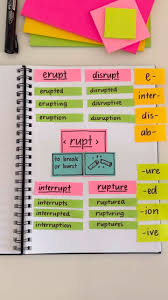 erupt disrupt e-
erupted disrupted inter-
erupting disrupting dis-
eruption disruption ab-
‹ rupt ›
to break
or burst
-ure
interrupt rupture -ed
interrupts ruptured -ion
interrupted rupturing
interruption ruptures -ive